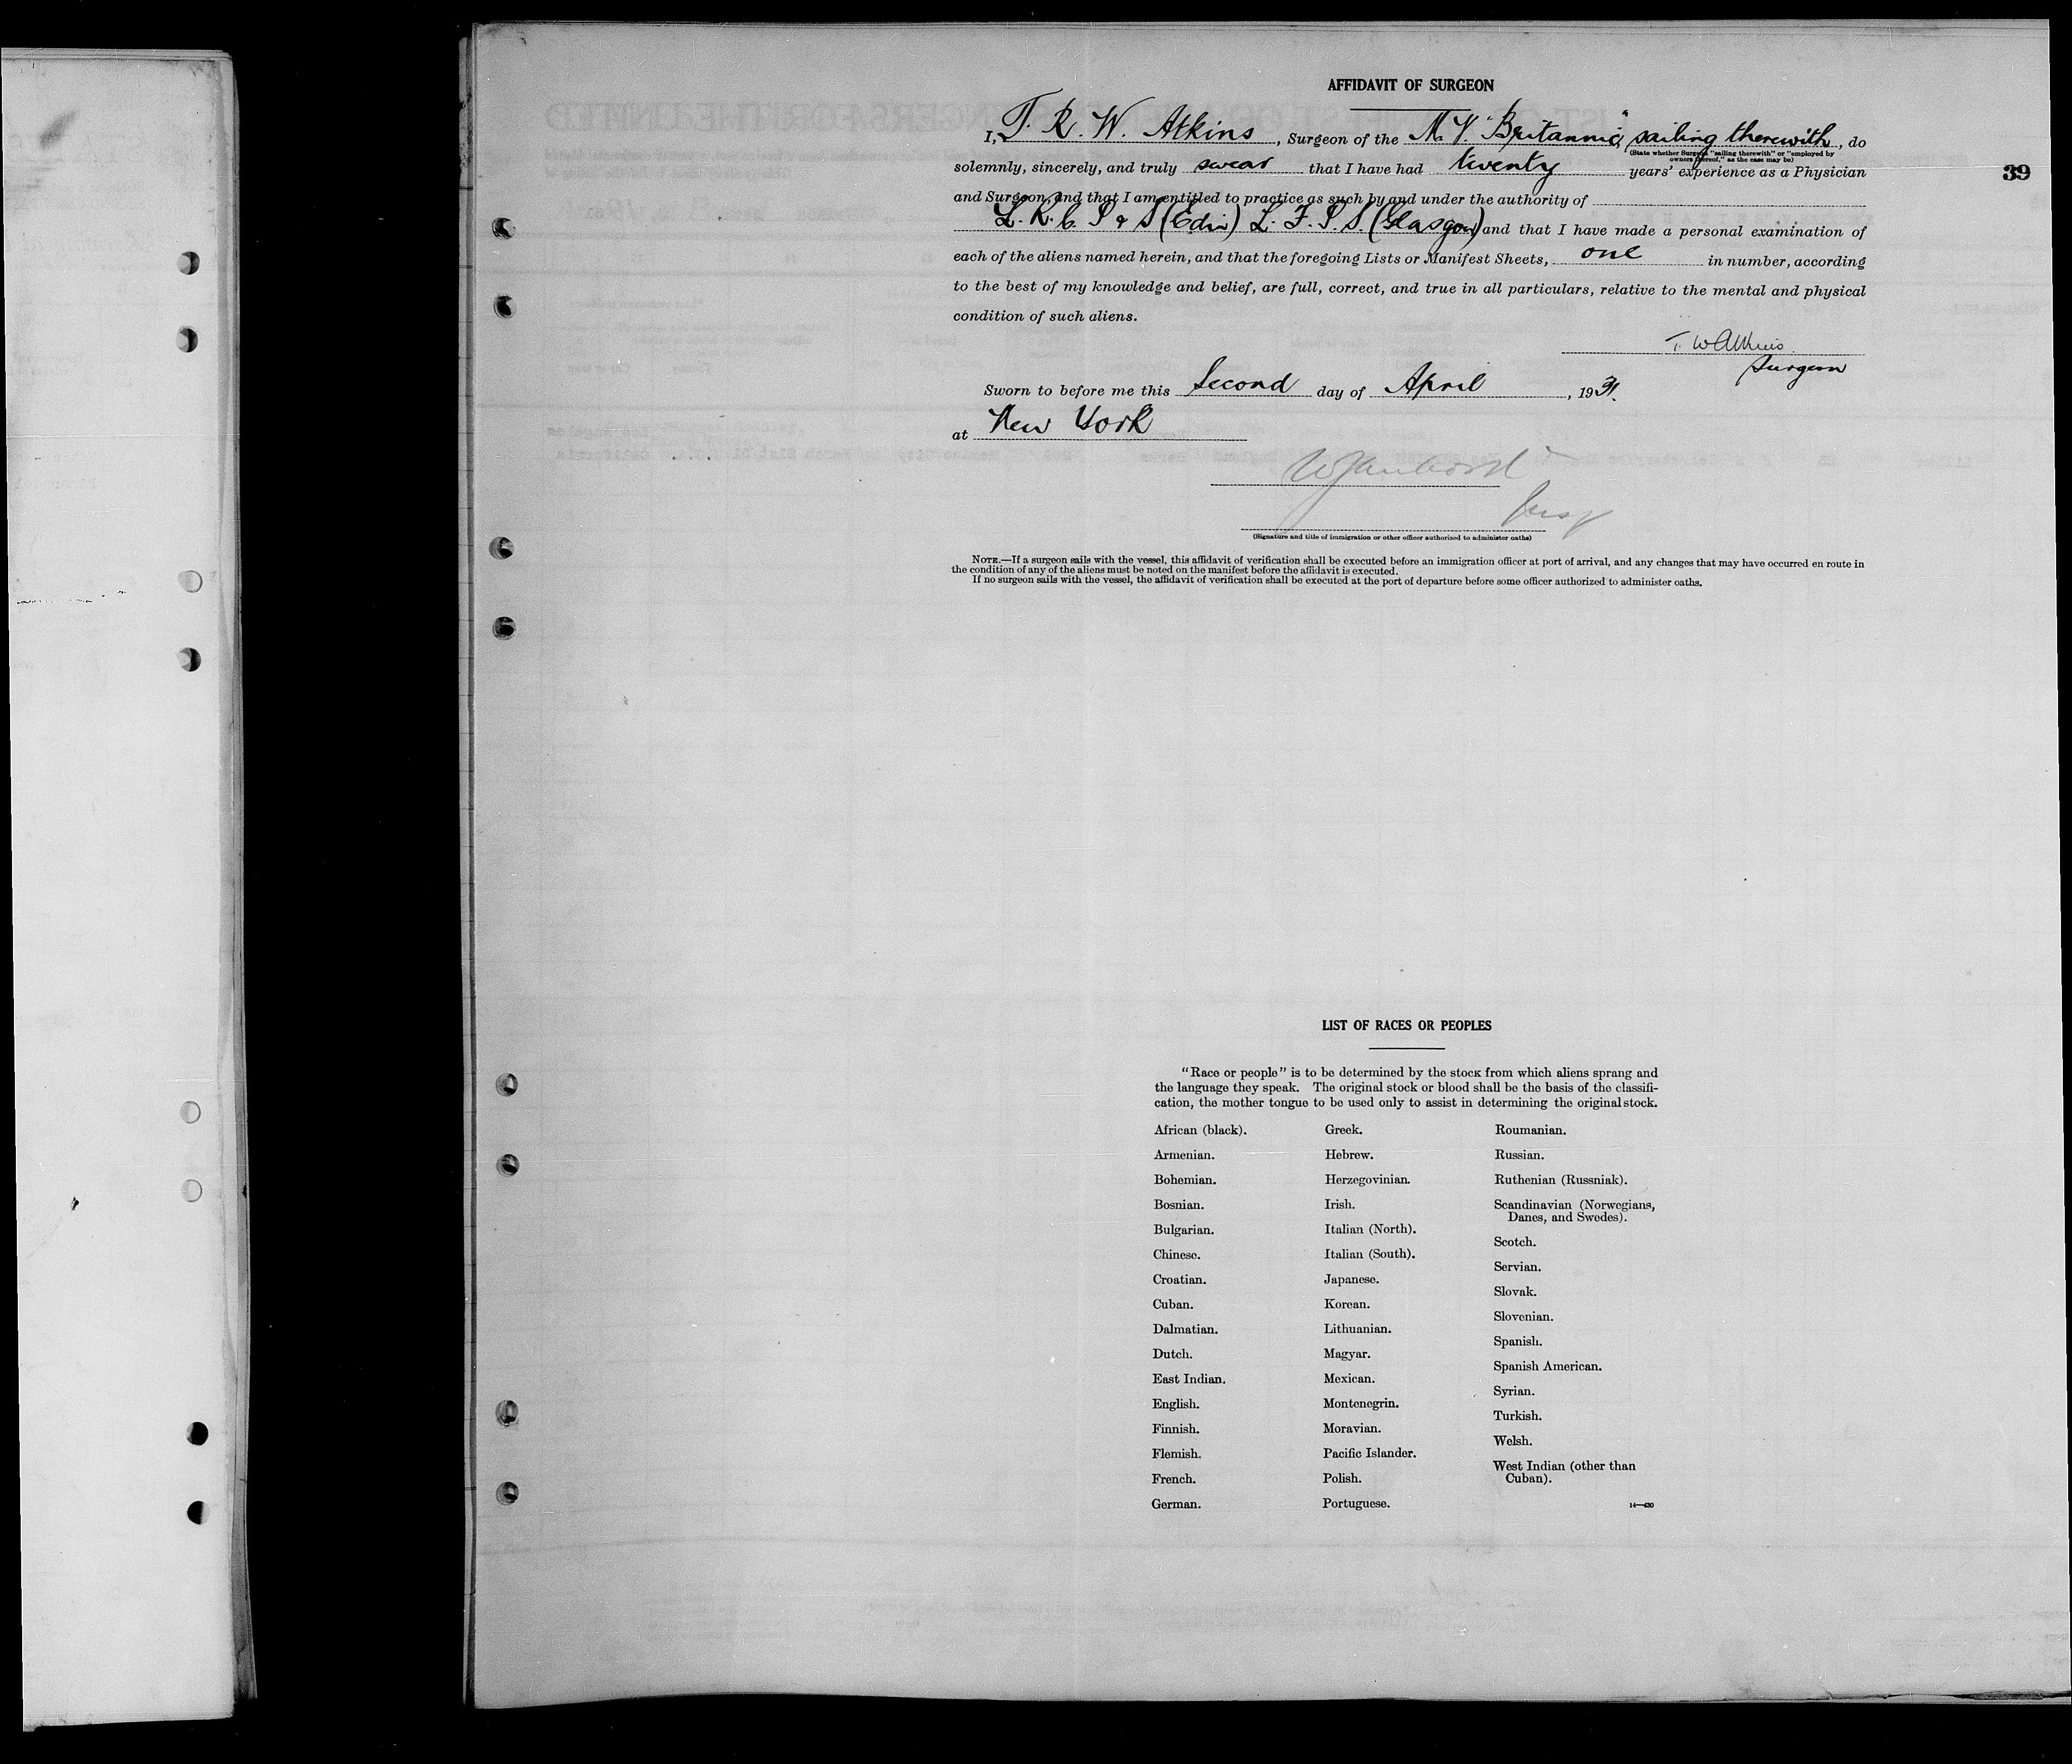 AFFIDAVIT OF SURGEON
I, T. R. W. Atkins, Surgeon of the M.V. "Britannic", sailing therewith, do
(State whether Surgeon "sailing therewith" or "employed by
owners thereof," as the case may be)
solemnly, sincerely, and truly swear that I have had twenty years' experience as a Physician
39
and Surgeon, and that I am entitled to practice as such by and under the authority of
L. R. C. P & S (Edin) L. F. P. S. (Glasgow) and that I have made a personal examination of
each of the aliens named herein, and that the foregoing Lists or Manifest Sheets, one in number, according
to the best of my knowledge and belief, are full, correct, and true in all particulars, relative to the mental and physical
condition of such aliens.
T. W Atkins.
Surgeon
Sworn to before me this Second day of April, 1931.
at New York
Insp
(Signature and title of immigration or other officer authorized to administer oaths)
NOTE.—If a surgeon sails with the vessel, this affidavit of verification shall be executed before an immigration officer at port of arrival, and any changes that may have occurred en route in
the condition of any of the aliens must be noted on the manifest before the affidavit is executed.
If no surgeon sails with the vessel, the affidavit of verification shall be executed at the port of departure before some officer authorized to administer oaths.
LIST OF RACES OR PEOPLES
"Race or people" is to be determined by the stock from which aliens sprang and
the language they speak. The original stock or blood shall be the basis of the classifi-
cation, the mother tongue to be used only to assist in determining the original stock.
African (black).
Armenian.
Bohemian.
Bosnian.
Bulgarian.
Chinese.
Croatian.
Cuban.
Dalmatian.
Dutch.
East Indian.
English.
Finnish.
Flemish.
French.
German.
Greek.
Hebrew.
Herzegovinian.
Irish.
Italian (North).
Italian (South).
Japanese.
Korean.
Lithuanian.
Magyar.
Mexican.
Montenegrin.
Moravian.
Pacific Islander.
Polish.
Portuguese.
Roumanian.
Russian.
Ruthenian (Russniak).
Scandinavian (Norwegians,
Danes, and Swedes).
Scotch.
Servian.
Slovak.
Slovenian.
Spanish.
Spanish American.
Syrian.
Turkish.
Welsh.
West Indian (other than
Cuban).
14—430